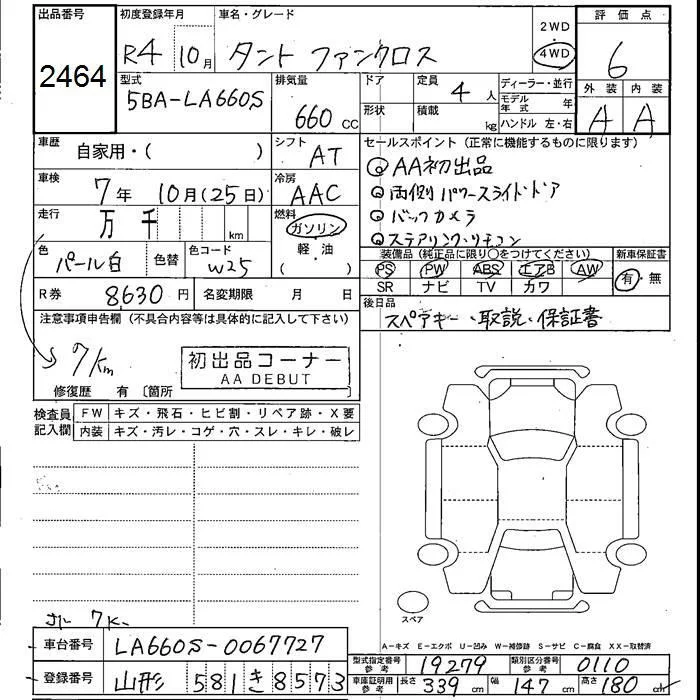 出品番号 初度登録年月 車名・グレード 2WD 評価点
2464 R4 10月 タント ファンクロス 4WD 6
型式 排気量 ドア 定員 ディーラー・並行 外装 内装
5BA-LA660S 660 CC 4人 モデル年式 年 A A
形状 積載 kg ハンドル 左・右
車歴 自家用・( ) シフト AT セールスポイント(正常に機能するものに限ります)
AA初出品
車検 7年 10月(25日) 冷房 AAC 両側パワースライドドア
走行 万 千 km 燃料 ガソリン バックカメラ
軽・油 ステアリング・リモコン
( )
色 パール白 色替 色コード W25 装備品(純正品に限り○をつけてください) 新車保証書
PS PW ABS エアB AW 有・無
R券 8630円 名変期限 月 日 SR ナビ TV カワ
注意事項申告欄(不具合内容等は具体的に記入して下さい) 後日品
スペアキー・取説・保証書
7km 初出品コーナー
AA DEBUT
修復歴 有〔箇所
検査員 FW キズ・飛石・ヒビ割・リペア跡・X要
記入欄 内装 キズ・汚レ・コゲ・穴・スレ・キレ・破レ
スペア
A-キズ E-エクボ U-凹み W-補修跡 S-サビ C-腐食 XX-取替済
車台番号 LA660S-0067727 型式指定番号 参考 19279 類別区分番号 参考 0110
登録番号 山形 581 き 8573 車庫証明用 参考 長さ 339cm 幅 147cm 高さ 180cm